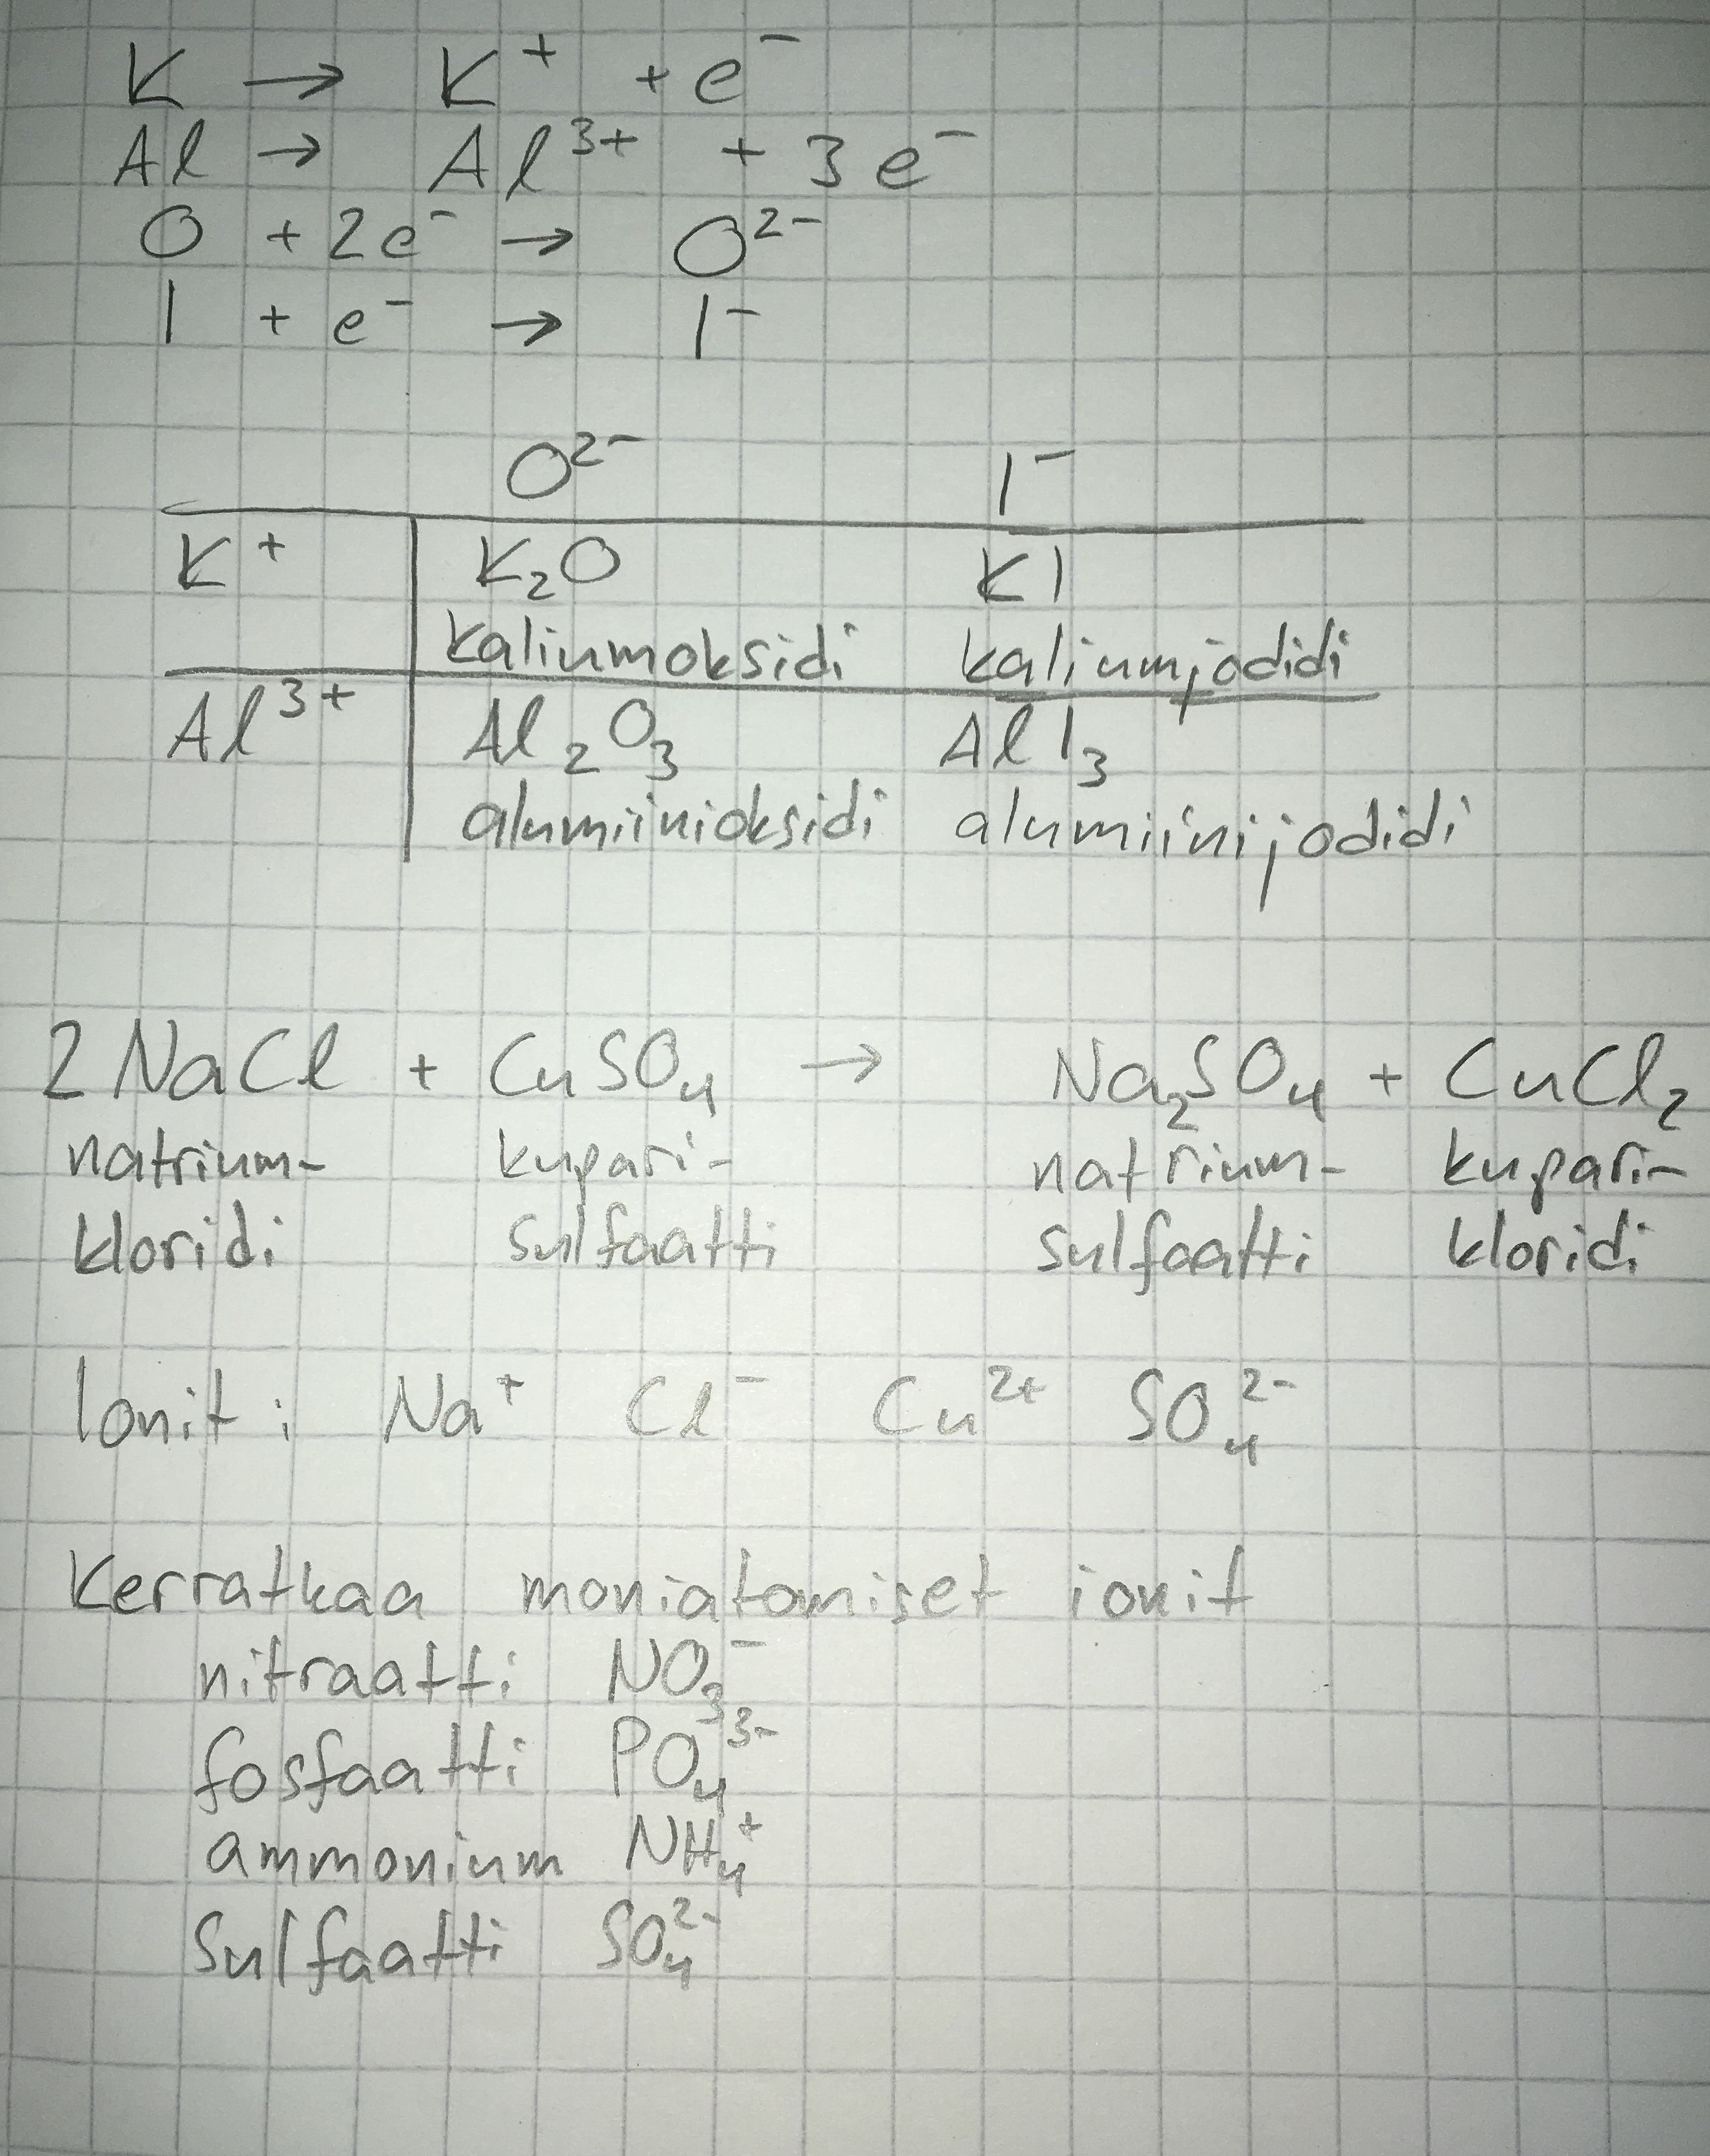 K → K⁺ + e⁻
Al → Al³⁺ + 3e⁻
O + 2e⁻ → O²⁻
I + e⁻ → I⁻
O²⁻ I⁻
K⁺ K₂O KI
kaliumoksidi kaliumjodidi
Al³⁺ Al₂O₃ AlI₃
alumiinioksidi alumiinijodidi
2 NaCl + CuSO₄ → Na₂SO₄ + CuCl₂
natrium- kupari- natrium- kupari-
kloridi sulfaatti sulfaatti kloridi
Ionit: Na⁺ Cl⁻ Cu²⁺ SO₄²⁻
Kerratkaa moniatomiset ionit
nitraatti NO₃⁻
fosfaatti PO₄³⁻
ammonium NH₄⁺
sulfaatti SO₄²⁻